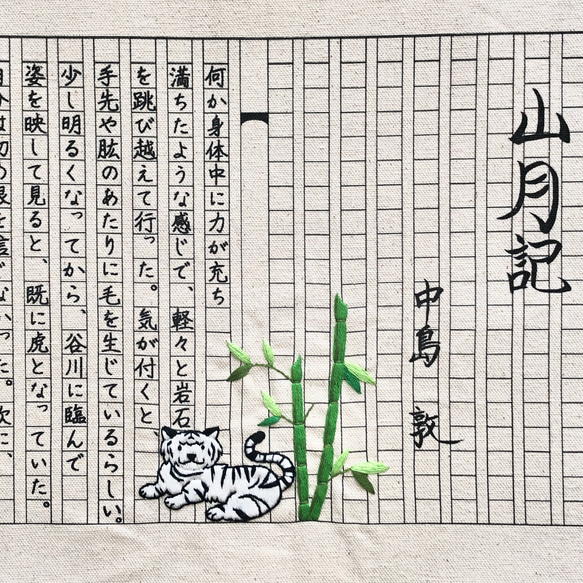 山月記
中島 敦
何か身体中に力が充ち
満ちたような感じで、軽々と岩石
を跳び越えて行った。気が付くと
手先や肱のあたりに毛を生じているらしい。
少し明るくなってから、谷川に臨んで
姿を映して見ると、既に虎となっていた。